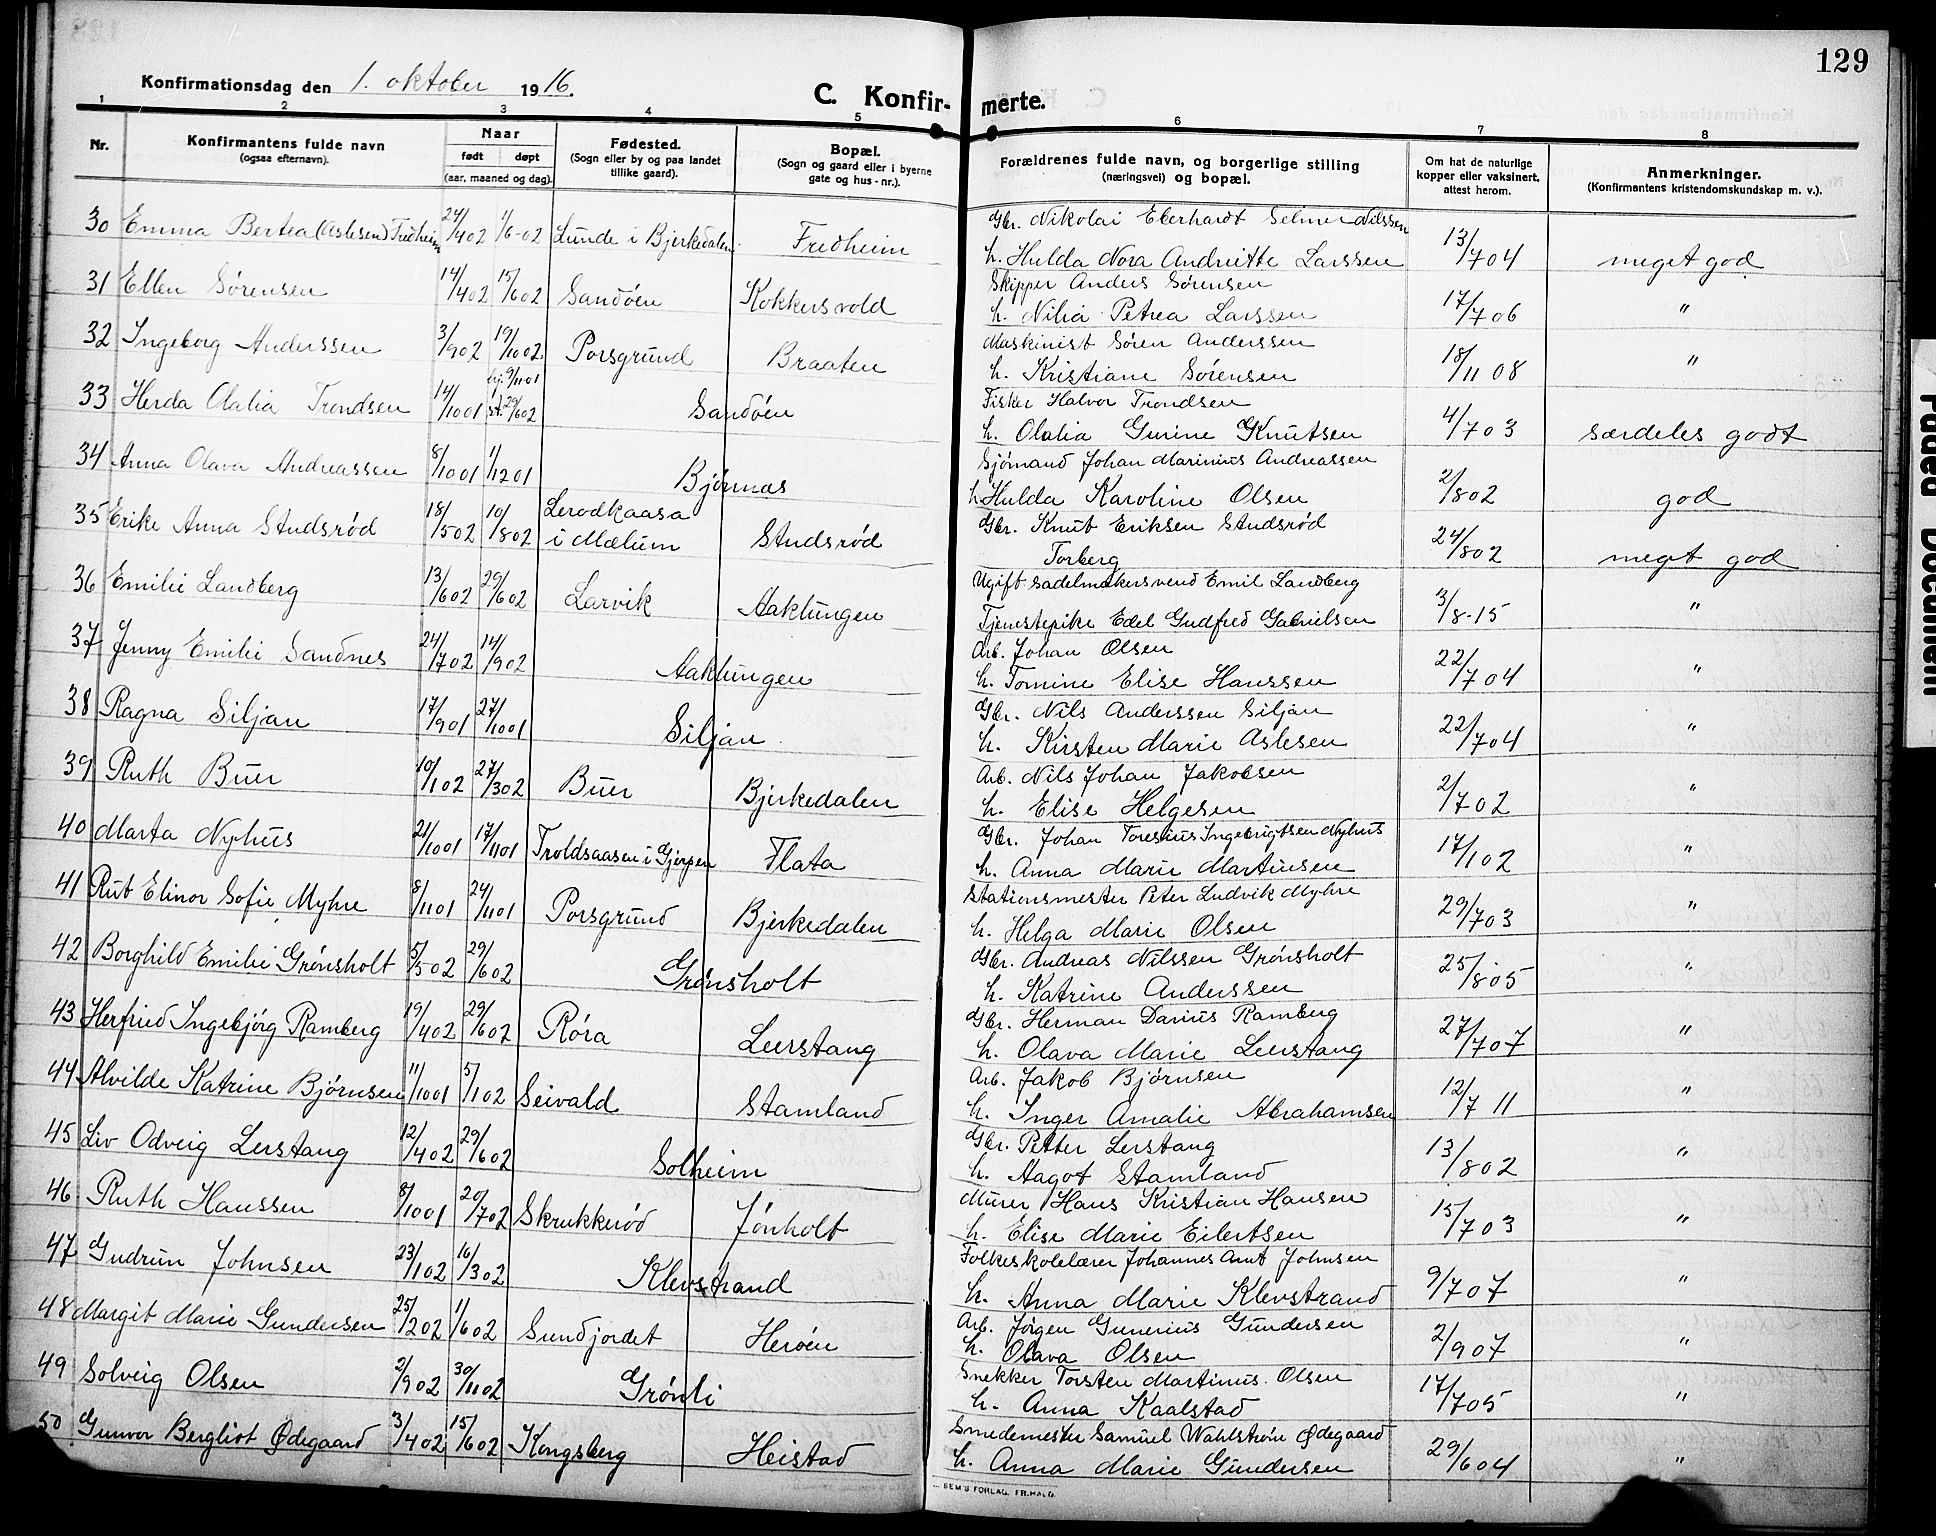 129
Konfirmationsdag den 1. oktober 1916.
C. Konfirmerte.
1 2 3 4 5 6 7 8
Nr. Konfirmantens fulde navn (ogsaa efternavn). Naar født døpt (aar, maaned og dag). Fødested. (Sogn eller by og paa landet tillike gaard). Bopæl. (Sogn og gaard eller i byerne gate og hus-nr.). Forældrenes fulde navn, og borgerlige stilling (næringsvei) og bopæl. Om hat de naturlige kopper eller vaksinert, attest herom. Anmerkninger. (Konfirmantens kristendomskundskap m. v.).
30 Emma Bertea (Aslesen) Fredheim 24/4 02 1/6-02 Lunde i Bjerkedalen Fredheim Gbr. Nikolai Eberhardt Selmer Nilssen
h. Hulda Nora Andritte Larssen 13/7 04 meget god
31 Ellen Sørensen 14/4 02 15/6 02 Sandöen Kokkersvold Skipper Anders Sørensen
h. Nilia Petrea Larssen 17/7 06 "
32 Ingeborg Anderssen 3/9 02 19/10 02 Porsgrund Braaten Maskinist Søren Anderssen
h. Kristiane Sørensen 18/11 08 "
33 Herda Olalia Trondsen 14/10 01 hj. 9/11 01 st. 29/6 02 Sandöen Fisker Halvor Trondsen
h. Olalia Gurine Knutsen 4/7 03 særdeles godt
34 Anna Olava Andreassen 8/10 01 1/12 01 Bjørnæs Sjømand Johan Marinius Andreassen
h. Hulda Karoline Olsen 2/8 02 god
35 Erike Anna Studsrød 18/5 02 10/8 02 Lerodkaasa i Mælum Studsrød Gbr. Knut Eriksen Studsrød
Torberg 24/8 02 meget god
36 Emilie Landberg 13/6 02 29/6 02 Larvik Aaklungen Ugift sadelmakersvend Emil Landberg
Tjenestepike Edel Gudfred Gabrielsen 3/8-15 "
37 Jenny Emilie Sandnes 24/7 02 14/9 02 Aaklungen Arb. Johan Olsen
h. Tomine Elise Hanssen 22/7 04 "
38 Ragna Siljan 17/9 01 27/10 01 Siljan Gbr. Nils Anderssen Siljan
h. Kirsten Marie Aslesen 22/7 04 "
39 Ruth Buer 10/1 02 27/3 02 Buer Bjerkedalen Arb. Nils Johan Jakobsen
h. Elise Helgesen 2/7 02 "
40 Marta Nyhus 21/10 01 17/11 01 Troldsaasen i Gjerpen Flata Gbr. Johan Toresius Ingebrigtsen Nyhus
h. Anna Marie Martinsen 17/1 02 "
41 Rut Elinor Sofie Myhre 8/11 01 24/11 01 Porsgrund Bjerkedalen Stationsmester Peter Ludvik Myhre
h. Helga Marie Olsen 29/7 03 "
42 Borghild Emilie Grønsholt 5/5 02 29/6 02 Grønsholt Gbr. Andreas Nilssen Grønsholt
h. Katrine Anderssen 25/8 05 "
43 Herfried Ingebjørg Ramberg 19/4 02 29/6 02 Röra Lerstang Gbr. Herman Darius Ramberg
h. Olava Marie Lerstang 27/7 07 "
44 Alvilde Katrine Bjørnsen 11/10 01 5/1 02 Seivald Stamland Arb. Jakob Bjørnsen
h. Inger Amalie Abrahamsen 12/7 11 "
45 Liv Odveig Lerstang 12/4 02 29/6 02 Solheim Gbr. Petter Lerstang
h. Aagot Stamland 13/8 02 "
46 Ruth Hanssen 8/10 01 20/7 02 Skrukkerød Jönholt Murer Hans Kristian Hansen
h. Elise Marie Eilertsen 15/7 03 "
47 Gudrun Johnsen 23/1 02 16/3 02 Klevstrand Folkeskolelærer Johannes Arnt Johnsen
h. Anna Marie Klevstrand 9/7 07 "
48 Margit Marie Gundersen 25/2 02 1/6 02 Sundjordet Heröen Arb. Jørgen Gunerius Gundersen
h. Olava Olsen 2/9 07 "
49 Solveig Olsen 2/9 02 30/11 02 Grønli Snekker Torsten Martinus Olsen
h. Anna Kaalstad 17/7 05 "
50 Gunvor Bergliot Ødegaard 3/4 02 15/6 02 Kongsberg Heistad Smedemester Samuel Wahlstrøm Ødegaard
h. Anna Marie Gundersen 29/6 04 "
SEM'S FORLAG, FR.HALD.
Faded Document